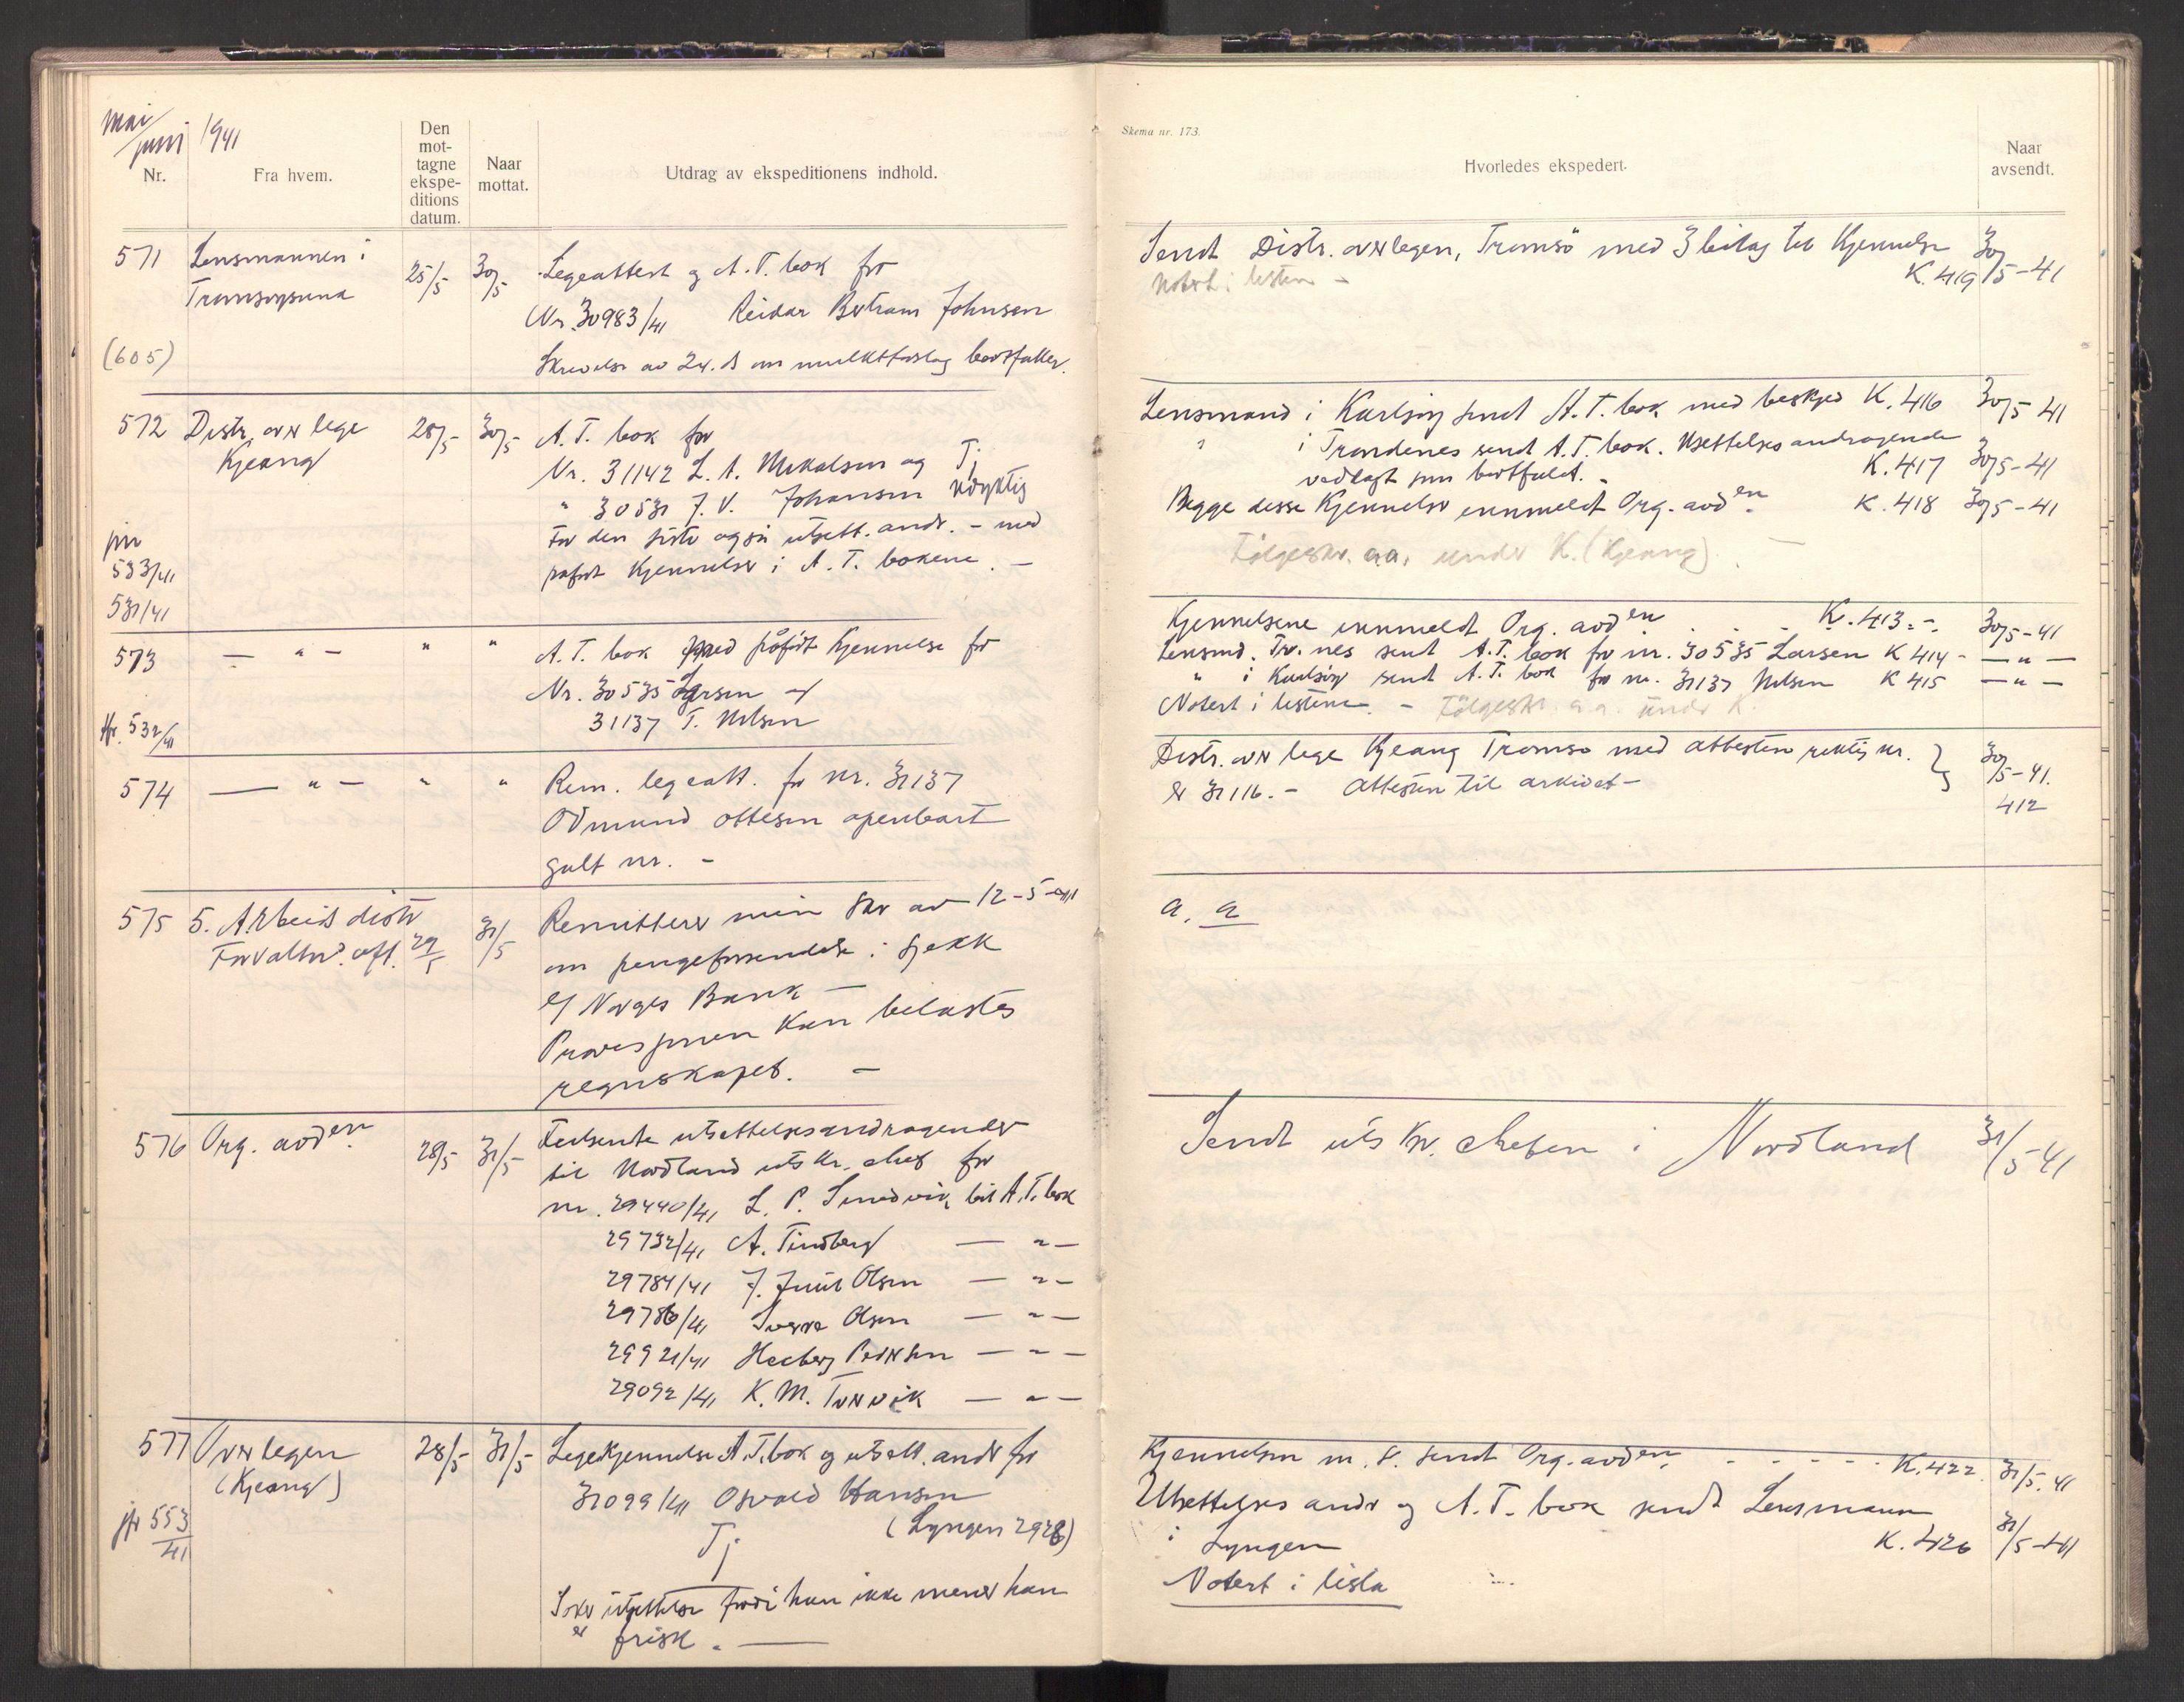 mai/juni 1941
Nr.
Fra hvem.
Den mot-
tagne
ekspe-
ditions
datum.
Naar
mottat.
Utdrag av ekspeditionens indhold.
571 Lensmannen i 25/5 30/5 Legeattest og A.T. bok for
Tromsøysund Nr. 30983/41 Reidar Bertram Johnsen
(605) Skrivelse av 24. ds om mulktforslag bortfaller.
572 Distr. overlege 28/5- 30/5- A.T. bok for
Kjeang Nr. 31142 L. A. Mikalsen og Tj
" 30531 J. V. Johansen udyktig
For den siste også utsett. andr. - med
jfr
533/41 påført Kjennelse i A.T. bøkene. -
531/41
573 - " - " " A.T. bok med påført Kjennelse for
Nr. 30535 Larsen og
jfr. 532/41 31137 T. Nilsen
574 - " - " " Rem. legeatt. for nr. 31137
Odmund Ottesen åpenbart
galt nr. -
575 5. Arbeidsdistr. 29/5 31/5 Remitterer min skr av 12-5-41
Forvaltn. off. om pengeforsendelse i sjekk
på Norges Bank -
Provisjonen kan belastes
regnskapet. -
576 Org. avd en 28/5 31/5 Feilsendte utsettelsesandragender
til Nordland utskr. chef for
nr. 29440/41 L. P. Sundvik, bil A.T. bok
29732/41 A. Tindberg - " -
29784/41 J. Juul Olsen - " -
29786/41 Sverre Olsen - " -
29921/41 Hedberg Pedersen - " -
29092/41 K. M. Torvik - " -
577 Overlegen 28/5- 31/5- Legekjennelse A.T. bok og utsett. andr for
(Kjeang) 31099/41 Osvald Hansen
jfr 553/41 (Lyngen 2928)
Tj
Søker utsettelse fordi han ikke mener han
er frisk. -
Skema nr. 173.
Hvorledes ekspedert.
Naar
avsendt.
Sendt Distr. overlegen, Tromsø med 3 bilag til Kjennelse 30/5-41
Notert i listen - K. 419
Lensmand i Karlsøy sendt A.T. bok med beskjed K. 416 30/5 41
" i Trondenes sendt A.T. bok. Utsettelsesandragende
vedlagt som bortfalt. - K. 417 30/5-41
Begge disse Kjennelser innmeldt Org. avd en. K. 418 30/5-41
Følgeskr. a.a. under K. (Kjeang). -
Kjennelsene innmeldt Org. avd en . . . K. 413. - 30/5-41
Lensmd. Tr.nes sendt A.T. bok for nr. 30535 Larsen K 414 - - " -
" i Karlsøy sendt A.T. bok for nr. 31137 Nilsen K 415 - " -
Notert i listene. - Følgeskr. a.a. under K.
Distr. overlege Kjeang Tromsø med attesten riktig nr. 30/5-41.
er 31116. - Attesten til arkivet - 412
a. a
Sendt utskr. chefen i Nordland 31/5-41
Kjennelsen m. v. sendt Org. avd en. . . . . . K. 422. 31/5. 41
Utsettelses andr og A.T. bok sendt Lensmann
i Lyngen K. 426 31/5-41
Notert i lista